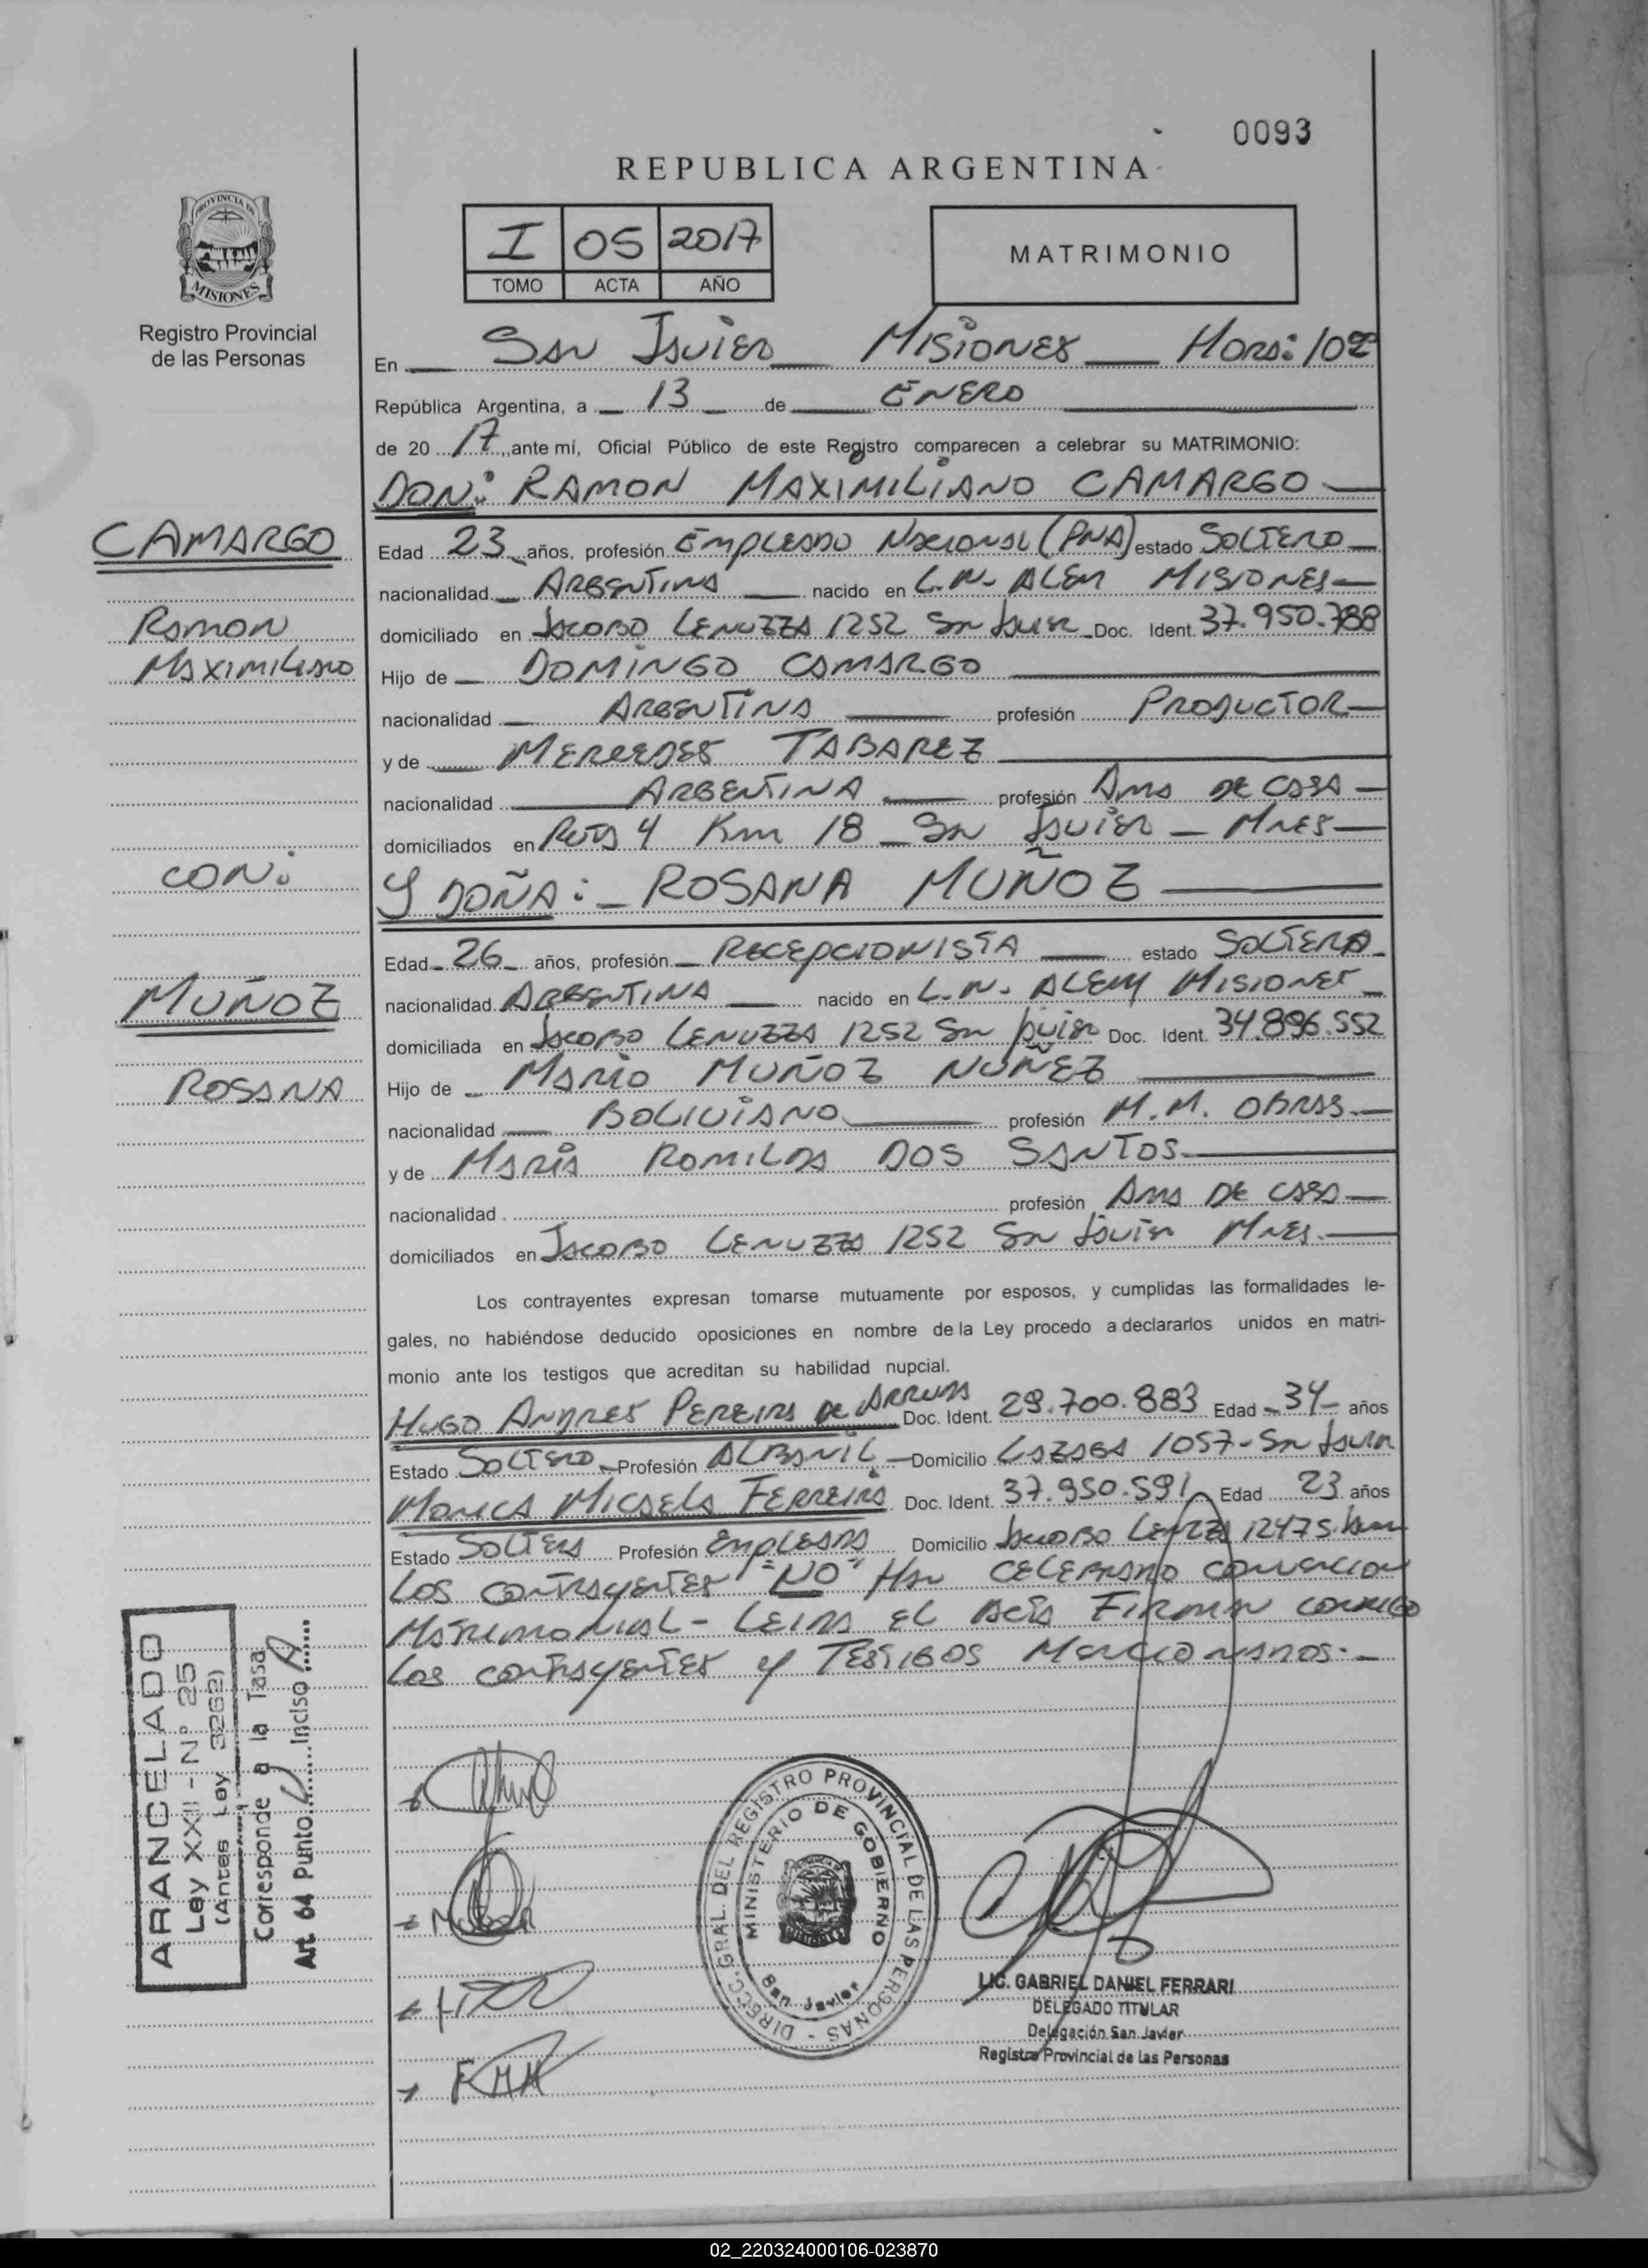 0093
REPUBLICA ARGENTINA
I 05 2017
TOMO ACTA AÑO
MATRIMONIO
PROVINCIA DE
MISIONES
Registro Provincial
de las Personas
En San Javier Misiones Hora: 10
República Argentina, a 13 de ENERO
de 20 17, ante mí, Oficial Público de este Registro comparecen a celebrar su MATRIMONIO:
DON: RAMON MAXIMILIANO CAMARGO
CAMARGO
Ramon
Maximiliano
Edad 23 años, profesión Empleado Nacional (PNA) estado SOLTERO
nacionalidad ARGENTINA nacido en L.N. ALEM MISIONES
domiciliado en Jacobo Lenuzza 1252 Sn Javier Doc. Ident. 37.950.788
Hijo de DOMINGO CAMARGO
nacionalidad ARGENTINA profesión PRODUCTOR
y de MERCEDES TABAREZ
nacionalidad ARGENTINA profesión Ama DE CASA
domiciliados en Ruta 4 Km 18 Sn Javier - Mnes
CON:
Y DOÑA: ROSANA MUÑOZ
MUÑOZ
ROSANA
Edad 26 años, profesión RECEPCIONISTA estado SOLTERA
nacionalidad ARGENTINA nacido en L.N. ALEM MISIONES
domiciliada en Jacobo Lenuzza 1252 Sn Javier Doc. Ident. 34.896.552
Hijo de MARIO MUÑOZ NUÑEZ
nacionalidad BOLIVIANO profesión M.M. OBRAS
y de MARIA ROMILDA DOS SANTOS
nacionalidad profesión Ama DE CASA
domiciliados en Jacobo Lenuzza 1252 Sn Javier Mnes.
Los contrayentes expresan tomarse mutuamente por esposos, y cumplidas las formalidades le-
gales, no habiéndose deducido oposiciones en nombre de la Ley procedo a declararlos unidos en matri-
monio ante los testigos que acreditan su habilidad nupcial.
HUGO ANDRES PEREIRA DE ARRUDA Doc. Ident. 29.700.883 Edad 34 años
Estado SOLTERO Profesión ALBANIL Domicilio 1057 - Sn Javier
MONICA MICAELA FERREIRA Doc. Ident. 37.950.591 Edad 23 años
Estado SOLTERA Profesión EMPLEADA Domicilio Jacobo
LOS CONTRAYENTES "NO" HAN CELEBRADO CONVENCION
MATRIMONIAL - LEIDA EL ACTA FIRMAN CONMIGO
LOS CONTRAYENTES Y TESTIGOS MENCIONADOS.-
ARANCELADO
Ley XXII - N° 25
(Antes Ley 3262)
Corresponde a la Tasa
Art 64 Punto Inciso A
DIRECC. GRAL. DEL REGISTRO PROVINCIAL DE LAS PERSONAS -
MINISTERIO DE GOBIERNO
San Javier
LIC. GABRIEL DANIEL FERRARI
DELEGADO TITULAR
Delegación San Javier
Registro Provincial de las Personas
02_220324000106-023870